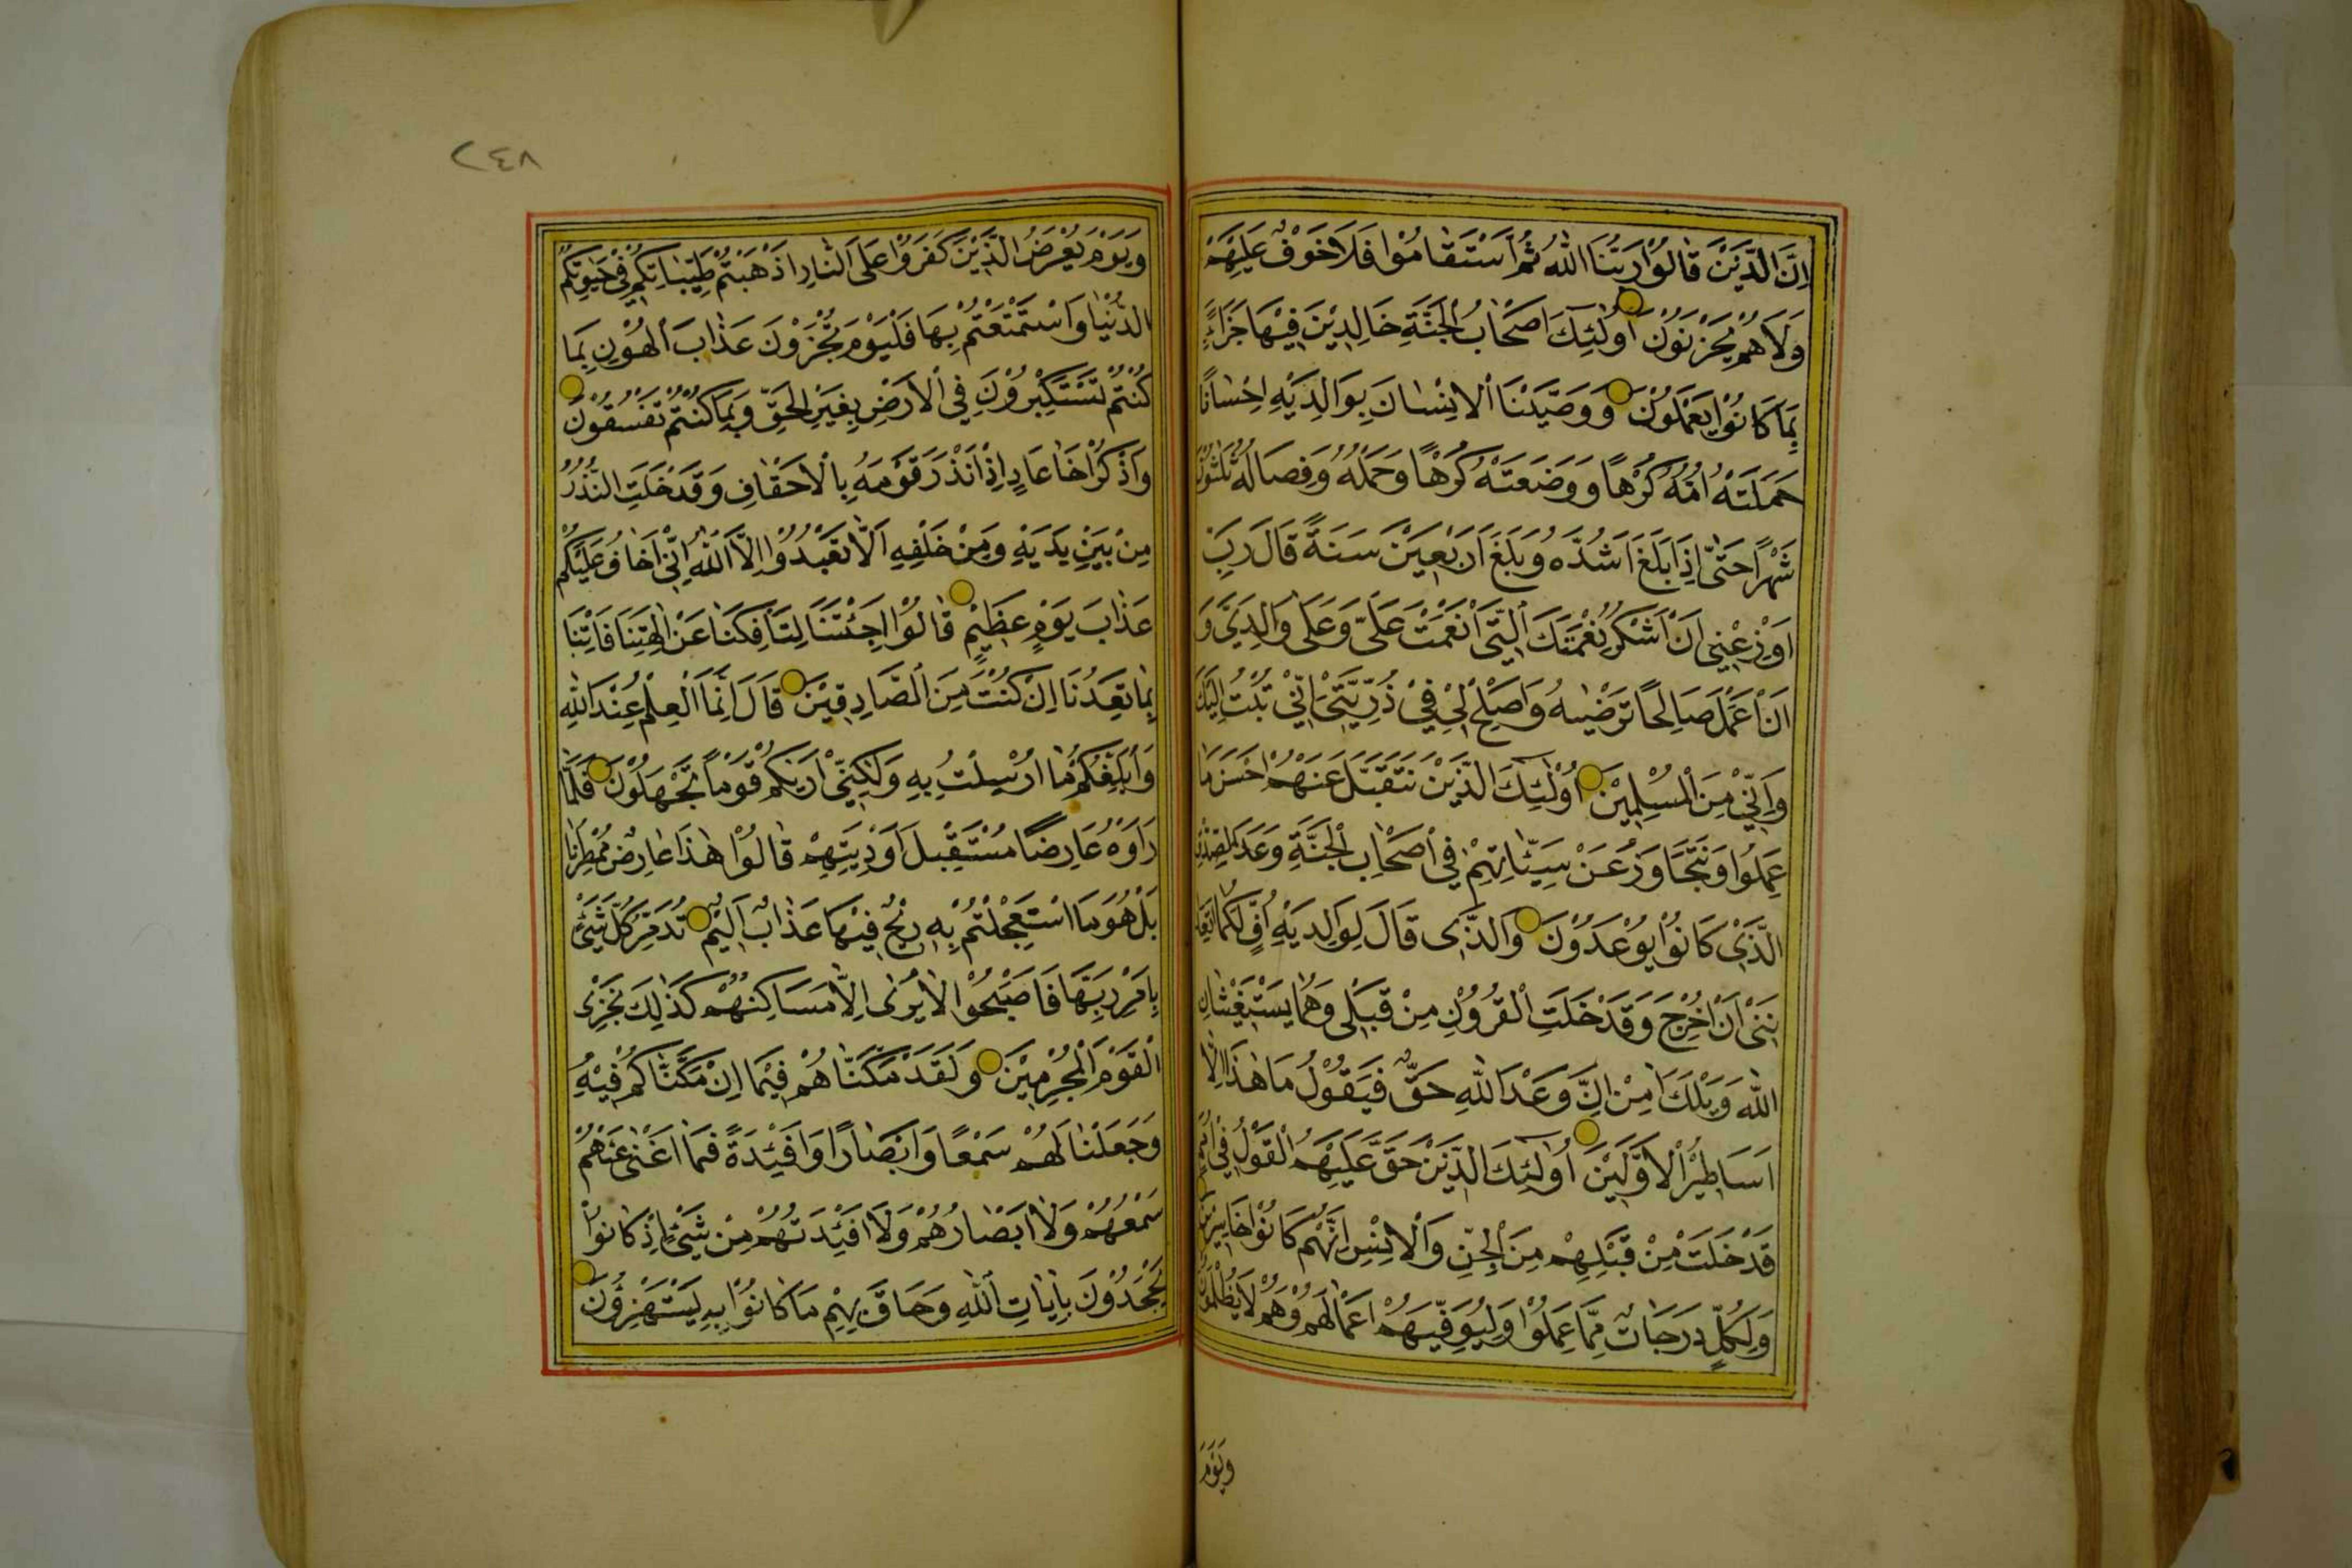 اِنَّ الَّذِيْنَ قَالُوْا رَبُّنَا اللّٰهُ ثُمَّ اسْتَقَامُوْا فَلَا خَوْفٌ عَلَيْهِمْ
وَلَا هُمْ يَحْزَنُوْنَ اُولٰٓئِكَ اَصْحَابُ الْجَنَّةِ خَالِدِيْنَ فِيْهَا جَزَاءً
بِمَا كَانُوْا يَعْمَلُوْنَ وَوَصَّيْنَا الْاِنْسَانَ بِوَالِدَيْهِ اِحْسَانًا
حَمَلَتْهُ اُمُّهُ كُرْهًا وَوَضَعَتْهُ كُرْهًا وَحَمْلُهُ وَفِصَالُهُ ثَلٰثُوْنَ
شَهْرًا حَتّٰى اِذَا بَلَغَ اَشُدَّهُ وَبَلَغَ اَرْبَعِيْنَ سَنَةً قَالَ رَبِّ
اَوْزِعْنِى اَنْ اَشْكُرَ نِعْمَتَكَ الَّتِى اَنْعَمْتَ عَلَىَّ وَعَلٰى وَالِدَىَّ وَ
اَنْ اَعْمَلَ صَالِحًا تَرْضٰيهُ وَاَصْلِحْ لِىْ فِىْ ذُرِّيَّتِىْ اِنِّىْ تُبْتُ اِلَيْكَ
وَاِنِّىْ مِنَ الْمُسْلِمِيْنَ اُولٰٓئِكَ الَّذِيْنَ نَتَقَبَّلُ عَنْهُمْ اَحْسَنَ مَا
عَمِلُوْا وَنَتَجَاوَزُ عَنْ سَيِّئَاتِهِمْ فِى اَصْحَابِ الْجَنَّةِ وَعْدَ الصِّدْقِ
الَّذِىْ كَانُوْا يُوْعَدُوْنَ وَالَّذِى قَالَ لِوَالِدَيْهِ اُفٍّ لَكُمَا اَتَعِدَا
نِنِىْ اَنْ اُخْرَجَ وَقَدْ خَلَتِ الْقُرُوْنُ مِنْ قَبْلِى وَهُمَا يَسْتَغِيْثَانِ
اللّٰهَ وَيْلَكَ اٰمِنْ اِنَّ وَعْدَ اللّٰهِ حَقٌّ فَيَقُوْلُ مَا هٰذَا اِلَّا
اَسَاطِيْرُ الْاَوَّلِيْنَ اُولٰٓئِكَ الَّذِيْنَ حَقَّ عَلَيْهِمُ الْقَوْلُ فِى اُمَمٍ
قَدْ خَلَتْ مِنْ قَبْلِهِمْ مِنَ الْجِنِّ وَالْاِنْسِ اِنَّهُمْ كَانُوْا خَاسِرِيْنَ
وَلِكُلٍّ دَرَجَاتٌ مِمَّا عَمِلُوْا وَلِيُوَفِّيَهُمْ اَعْمَالَهُمْ وَهُمْ لَا يُظْلَمُوْنَ
وَيَوْمَ
٢٤٨
وَيَوْمَ يُعْرَضُ الَّذِيْنَ كَفَرُوْا عَلَى النَّارِ اَذْهَبْتُمْ طَيِّبَاتِكُمْ فِىْ حَيٰوتِكُمُ
الدُّنْيَا وَاسْتَمْتَعْتُمْ بِهَا فَالْيَوْمَ تُجْزَوْنَ عَذَابَ الْهُوْنِ بِمَا
كُنْتُمْ تَسْتَكْبِرُوْنَ فِى الْاَرْضِ بِغَيْرِ الْحَقِّ وَبِمَا كُنْتُمْ تَفْسُقُوْنَ
وَاذْكُرْ اَخَا عَادٍ اِذْ اَنْذَرَ قَوْمَهُ بِالْاَحْقَافِ وَقَدْ خَلَتِ النُّذُرُ
مِنْ بَيْنِ يَدَيْهِ وَمِنْ خَلْفِهِ اَلَّا تَعْبُدُوْا اِلَّا اللّٰهَ اِنِّىْ اَخَافُ عَلَيْكُمْ
عَذَابَ يَوْمٍ عَظِيْمٍ قَالُوْا اَجِئْتَنَا لِتَاْفِكَنَا عَنْ اٰلِهَتِنَا فَاْتِنَا
بِمَا تَعِدُنَا اِنْ كُنْتَ مِنَ الصَّادِقِيْنَ قَالَ اِنَّمَا الْعِلْمُ عِنْدَ اللّٰهِ
وَاُبَلِّغُكُمْ مَا اُرْسِلْتُ بِهِ وَلٰكِنِّىْ اَرٰيكُمْ قَوْمًا تَجْهَلُوْنَ فَلَمَّا
رَاَوْهُ عَارِضًا مُسْتَقْبِلَ اَوْدِيَتِهِمْ قَالُوْا هٰذَا عَارِضٌ مُمْطِرُنَا
بَلْ هُوَ مَا اسْتَعْجَلْتُمْ بِهِ رِيْحٌ فِيْهَا عَذَابٌ اَلِيْمٌ تُدَمِّرُ كُلَّ شَىْءٍ
بِاَمْرِ رَبِّهَا فَاَصْبَحُوْا لَا يُرٰى اِلَّا مَسَاكِنُهُمْ كَذٰلِكَ نَجْزِى
الْقَوْمَ الْمُجْرِمِيْنَ وَلَقَدْ مَكَّنَّاهُمْ فِيْمَا اِنْ مَكَّنَّاكُمْ فِيْهِ
وَجَعَلْنَا لَهُمْ سَمْعًا وَاَبْصَارًا وَاَفْئِدَةً فَمَا اَغْنٰى عَنْهُمْ
سَمْعُهُمْ وَلَا اَبْصَارُهُمْ وَلَا اَفْئِدَتُهُمْ مِنْ شَىْءٍ اِذْ كَانُوْا
يَجْحَدُوْنَ بِاٰيَاتِ اللّٰهِ وَحَاقَ بِهِمْ مَا كَانُوْا بِهِ يَسْتَهْزِؤُنَ